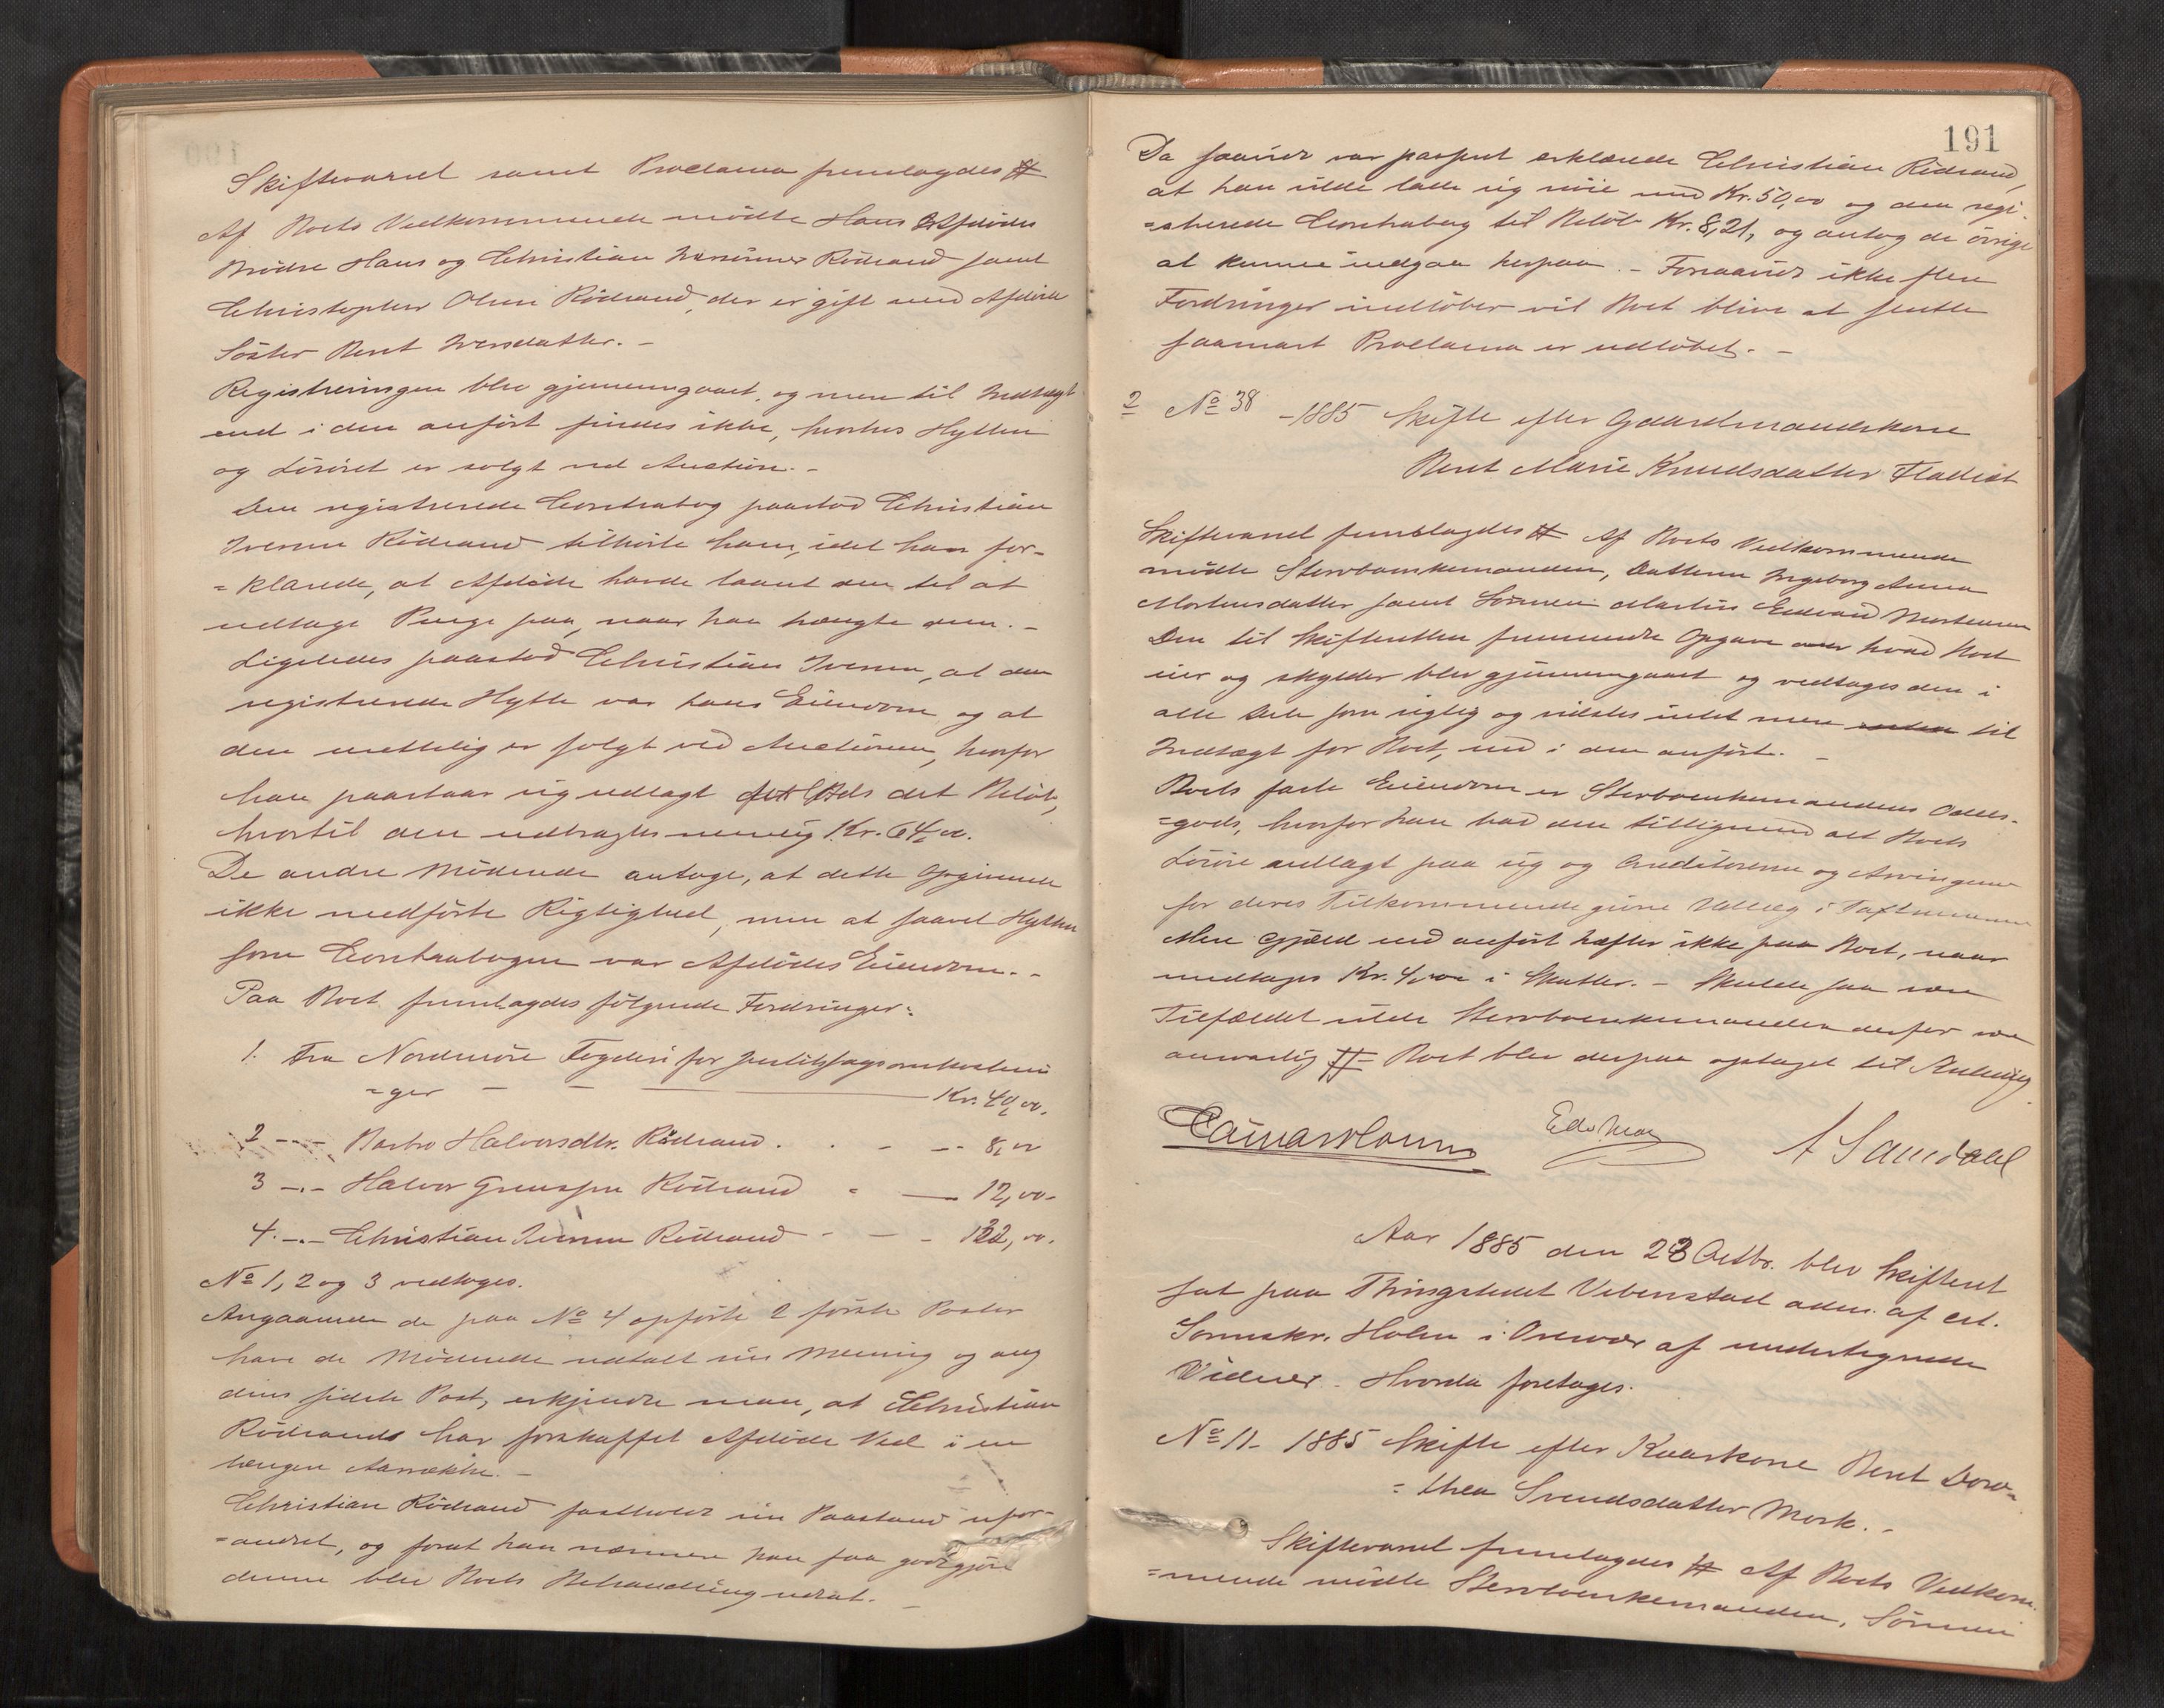 Skiftevarsel samt Proclama fremlagdes #
Af Boets Vedkommende mødte Hans Afdødes
Brødre Hans og Christian Iversønner Rødsand samt
Christopher Olsen Rødsand, der er gift med Afdødes
Søster Berit Iversdatter. -
Registreringen blev gjennemgaaet, og mere til Indtægt
end i den anført findes ikke, hvorhos Hytten
og Løsøret er solgt ved Auction. -
Den registrerede Contrabog paastod Christian
Iversen Rødsand tilhørte ham, idet han for-
=klarede, at Afdøde havde laant den til at
udtage Penge paa, naar han trængte dem. -
Ligeledes paastod Christian Iversen, at den
registrerede Hytte var hans Eiendom og at
den urettelig er solgt ved Auctionen, hvorfor
han paastaar sig udlagt det Beløb,
hvortil den udbragtes nemlig Kr. 64,00.
De andre Mødende antoge, at dette Opgivende
ikke medførte Rigtighed, men at saavel Hytten
som Contrabogen var Afdødes Eiendom. -
Paa Boet fremlagdes følgende Fordringer:
1. Fra Nordmøre Fogderi for Justitssagsomkostnin
=ger - - Kr. 40,00.
2 -.- Barbro Halvorsdtr. Rødsand . . - - 8,00
3 -.- Halvor Rødsand - - 12,00.
4. -.- Christian Iversen Rødsand - - - 132,00.
No 1, 2 og 3 vedtoges.
Angaaende de paa No 4 opførte 2 første Poster
have de Mødende udtalt sin Mening og ang
dens sidste Post, erkjendte man, at Christian
Rødsand har forskaffet Afdøde Ved i en
længere Aarrække. -
Christian Rødsand fastholdt sin Paastand ufor-
=andret, og forat han nærmere kan faa godtgjøre
denne blev Boets Behandling udsat. -
191
Da saavidt var passeret erklærede Christian Rødsand,
at han vilde lade sig nøie med Kr. 50,00 og den regi-
=strerede Contrabog til Beløb Kr. 8,21, og antog de øvrige
at kunne indgaa herpaa. - Forsaavidt ikke flere
Fordringer indløber vil Boet blive at slutte
saasnart Proclama er udløbet. -
2 No 38 - 1885 Skifte efter Gaardmandskone
Berit Marie Knudsdatter Fladset
Skiftevarsel fremlagdes # Af Boets Vedkommende
mødte Sterboenkemanden, Datteren Ingeborg Anna
Mortensdatter samt Sønnen Martin Edvard Mortensen
Den til Skifteretten fremsendte Opgave over hvad Boet
eier og skylder blev gjennemgaaet og vedtages den i
alle Dele som rigtig og vidstes intet mere til
Indtægt for Boet, end i den anført. -
Boets faste Eiendom er Sterboenkemandens Odels-
=gods, hvorfor han bad den tilligemed alt Boets
Løsøre udlagt paa sig og Creditorerne og Arvingerne
for deres Tilkommende givne Udlæg i Taxtsummen
Mere Gjæld end anført hæfter ikke paa Boet, naar
undtages Kr. 4,00 i Skatter. - Skulde saa være
Tilfældet vilde Sterboenkemanden derfor være
ansvarlig # Boet blev derpaa optaget til Slutning.
A Samdahl
Aar 1885 den 23 Octbr. blev Skifteret
sat paa Thingstedet Vebenstad adm. af cst.
Sorenskr. Holm i Overvær af undertegnede
Vidner. Hvorda foretages.
No 11 - 1885 Skifte efter Kaarkone Berit Doro=
=thea Svendsdatter Mork. -
Skiftevarsel fremlagdes # Af Boets Vedkom-
=mende mødte Sterboenkemanden, Sønnen